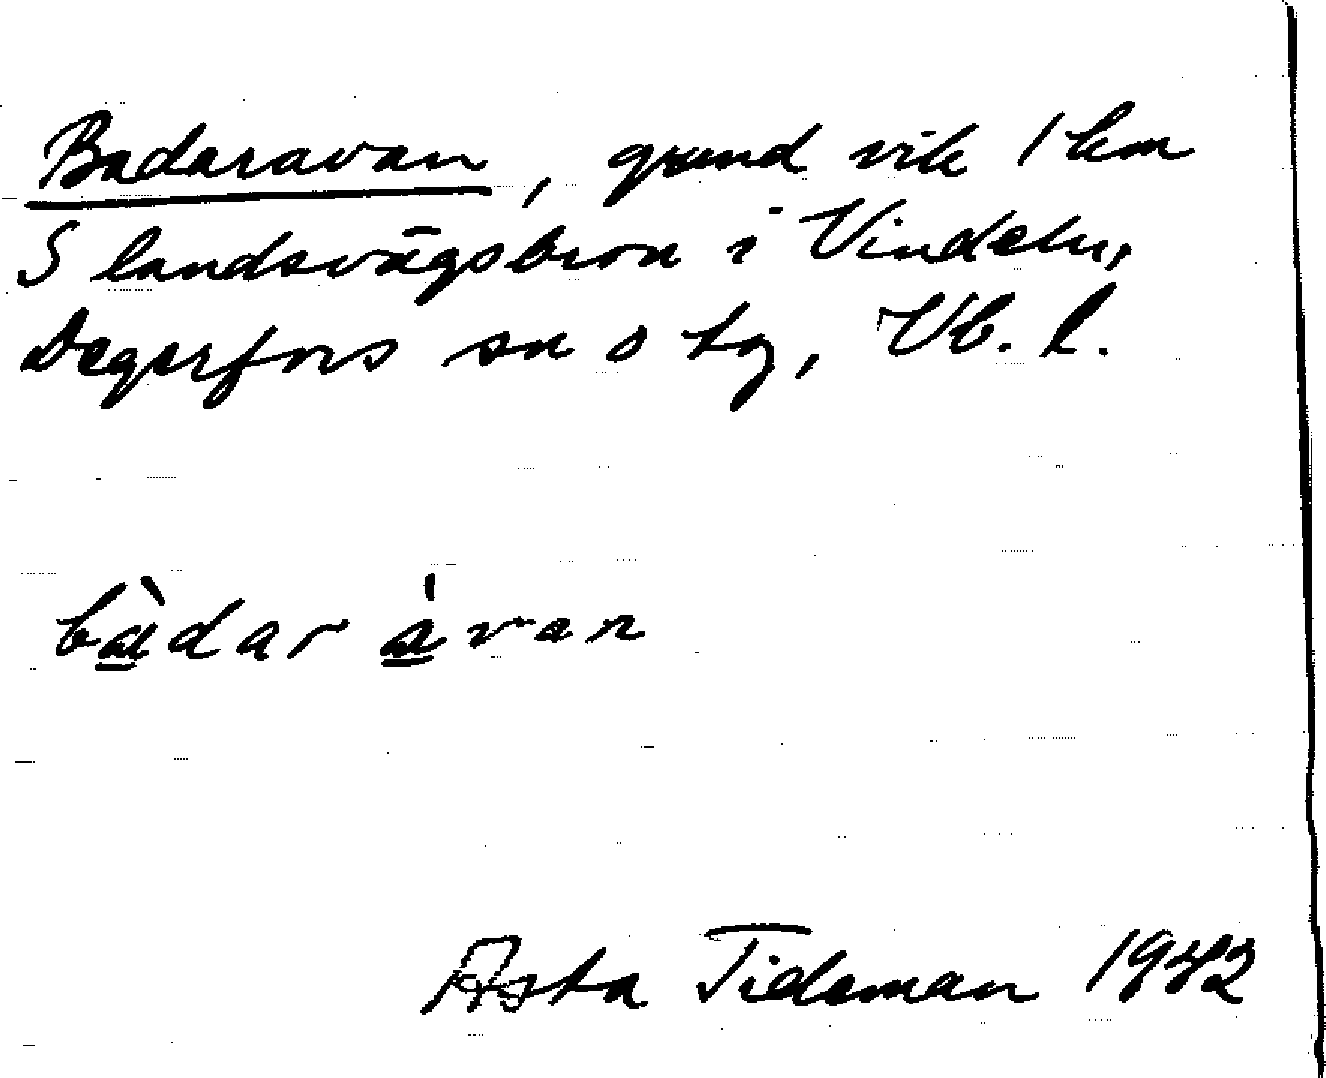 Badaravan, grund vik 1 km
S landsvägsbron i Vindeln,
Degerfors sn o tg, Vb. l.
bàdar àvan
Asta Tideman 1942